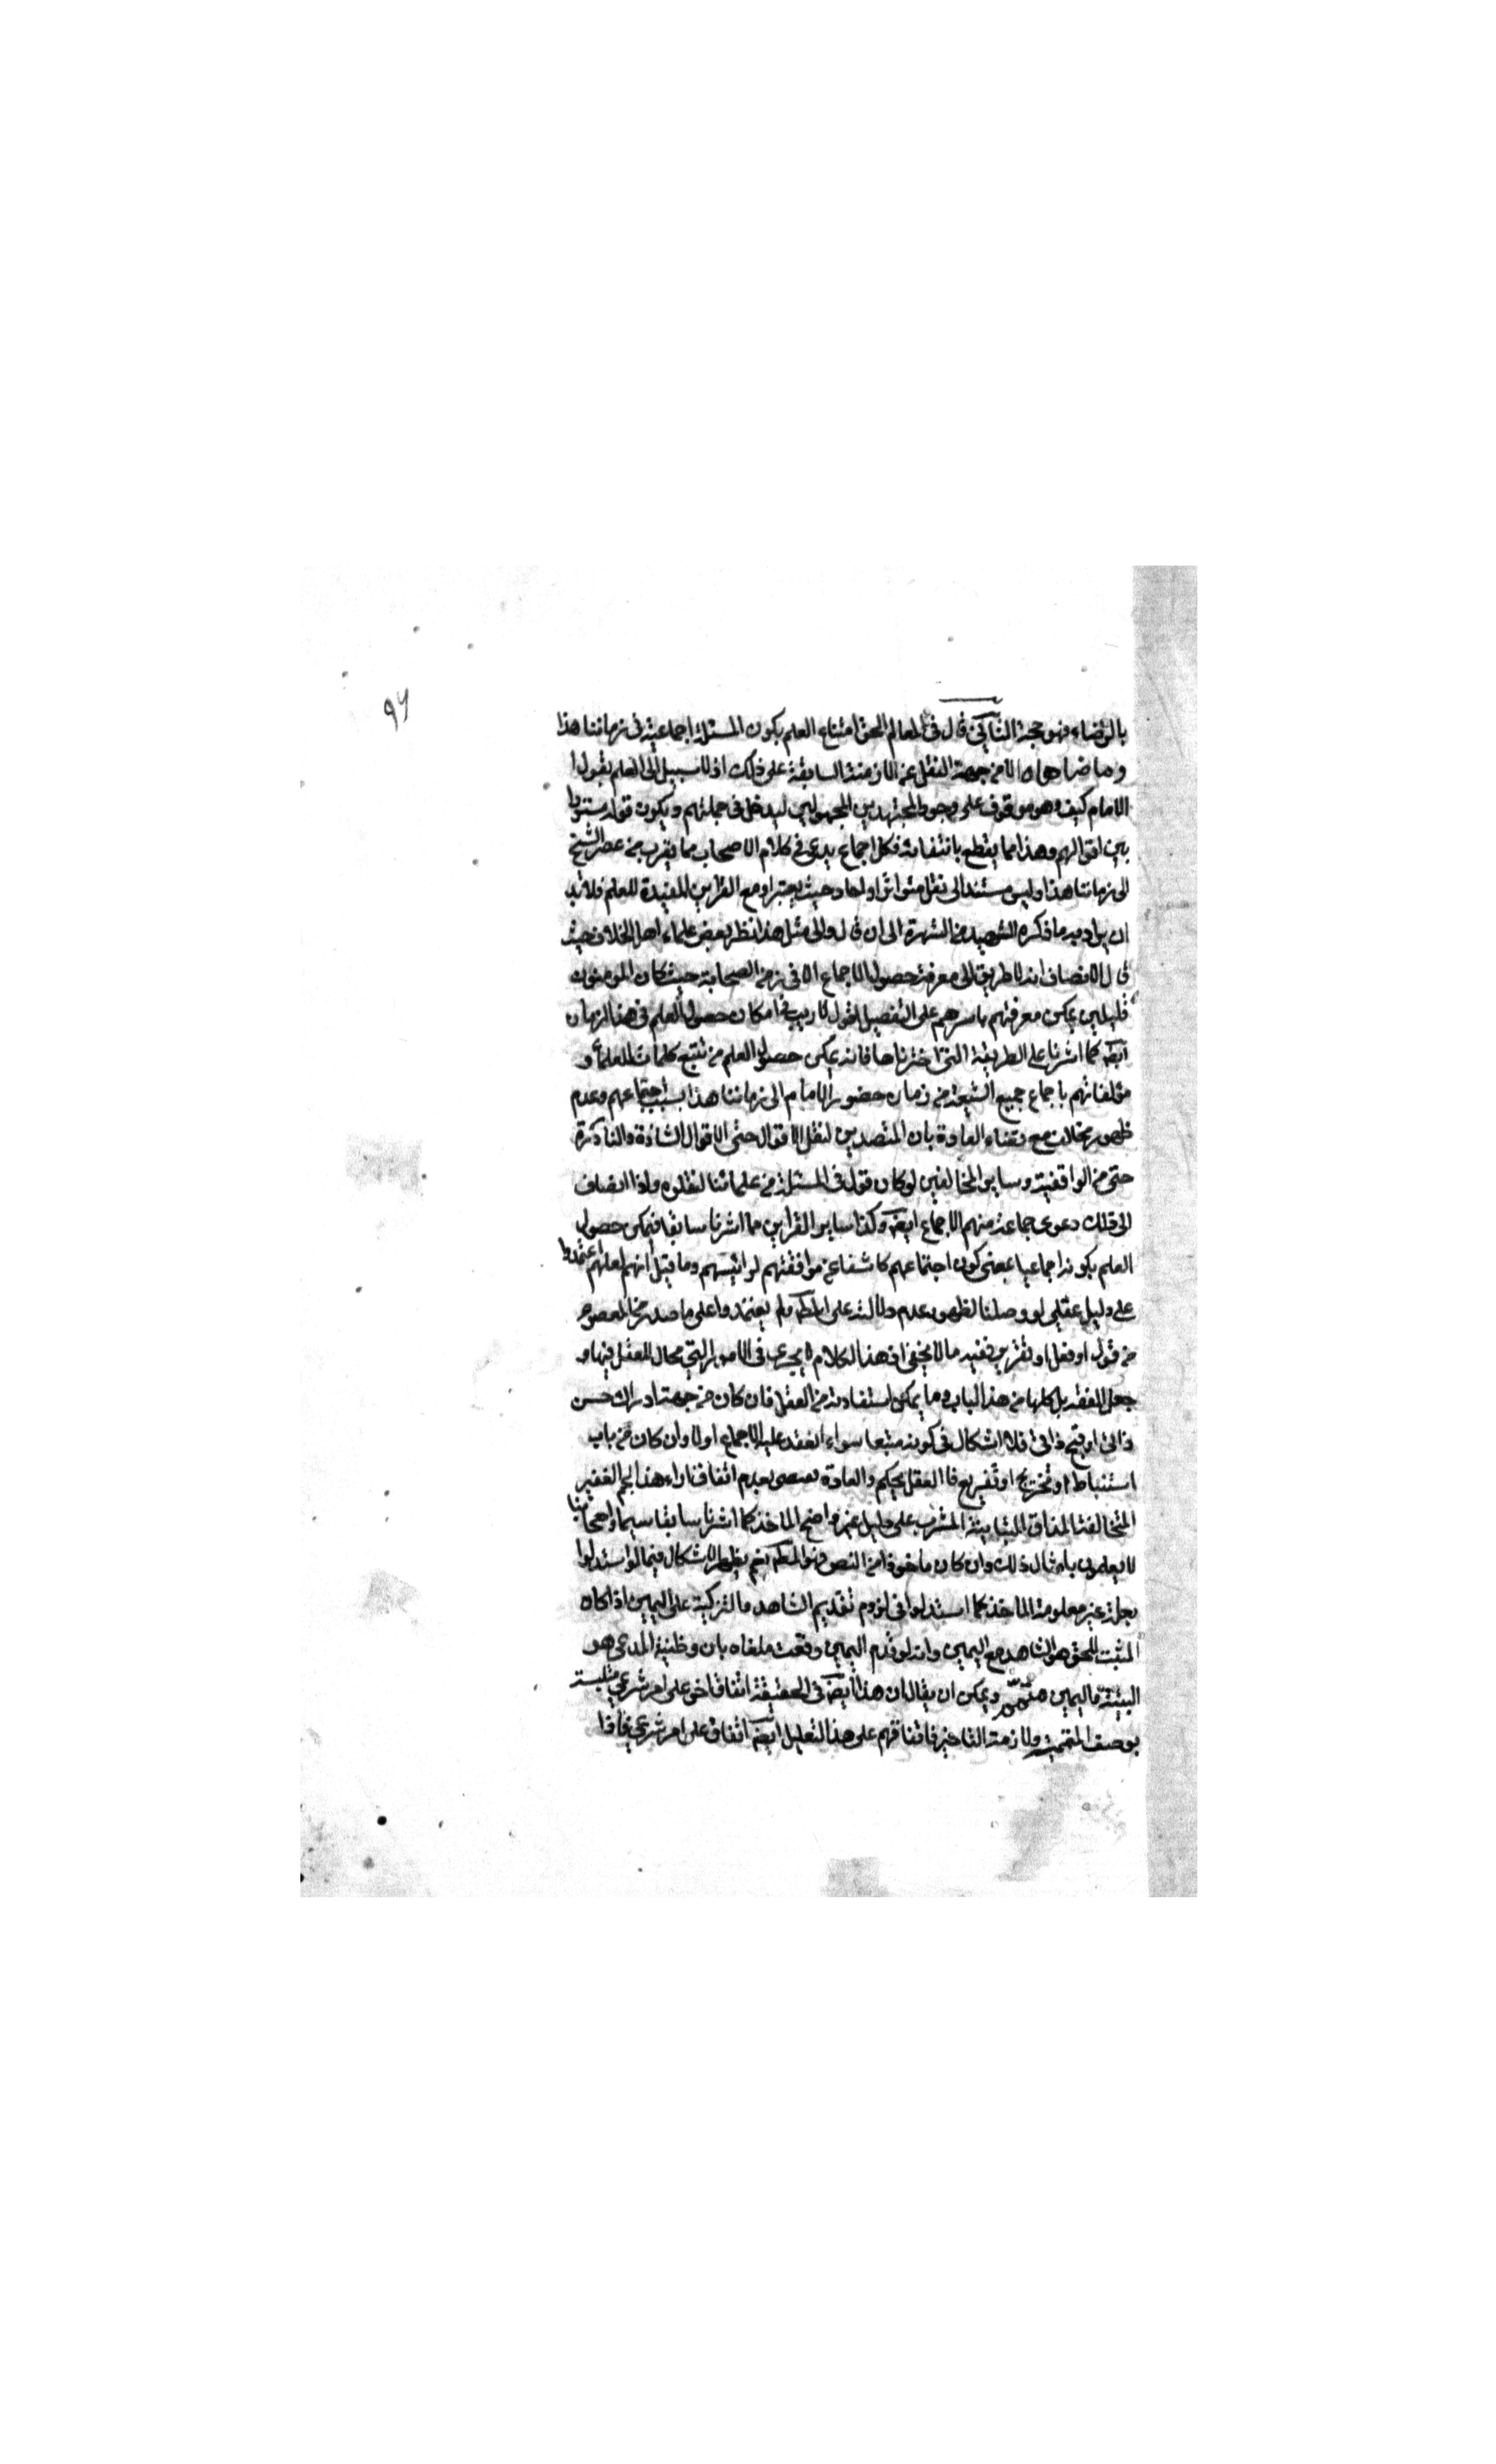 ٩٦
بالرضاء فهو حجة الثانى قال فى المعالم الحق امتناع العلم بكون المسئلة اجماعية فى زماننا هذا
وما ضاهاه الا من جهة النقل عن الازمنة السابقة على ذلك اذ لا سبيل الى العلم بقول
الامام كيف وهو موقوف على وجود المجتهدين المجهولين ليدخل فى جملتهم ويكون قوله مستورا
بين اقوالهم وهذا مما يقطع بانتفائه فكل اجماع يدعى فى كلام الاصحاب مما يقرب من عصر الشيخ
الى زماننا هذا وليس مستندا الى نقل متواتر او احاد حيث يعتبر او مع القراين المفيدة للعلم فلا بد
ان يراد به ما ذكره الشهيد من الشهرة الى ان قال والى مثل هذا نظر بعض علماء اهل الخلاف حيث
قال الانصاف انه لا طريق الى معرفة حصول الاجماع الا فى زمن الصحابة حيث كان المومنون
قليلين يمكن معرفتهم باسرهم على التفصيل اقول لا ريب فى امكان حصول العلم فى هذا الزمان
ايضا كما اشرنا على الطريقة التى اخترناها فانه يمكن حصول العلم من تتبع كلمات العلماء و
مؤلفاتهم باجماع جميع الشيعة من زمان حضور الامام الى زماننا هذا بسبب اجتماعهم وعدم
ظهور مخالف مع قضاء العادة بان المتصدين لنقل الاقوال حتى الاقوال الشاذة والنادرة
حتى من الواقفية وساير المخالفين لو كان قول فى المسئلة من علمائنا لنقلوه واذا انضاف
الى ذلك دعوى جماعة منهم الاجماع ايضا وكذا ساير القراين مما اشرنا سابقا فيمكن حصول
العلم بكونه اجماعيا بمعنى كون اجتماعهم كاشفا عن موافقتهم لرئيسهم وما قيل انهم لعلهم اعتمدوا
على دليل عقلى لو وصل الينا لظهر عدم دلالته على المط ولم يعتمدوا على ما صدر من المعصوم
من قول او فعل او تقرير ففيه ما لا يخفى اذ هذا الكلام لا يجرى فى الامور التى مجال للعقل فيها و
جعل الفقه بل كلها من هذا الباب وما يمكن استفادته من العقل فان كان من جهة ادراك حسن
ذاتى او قبح ذاتى فلا اشكال فى كونه متبعا سواء انعقد عليه الاجماع اولا وان كان من باب
استنباط او تخريج او تفريع فالعقل يحكم والعادة بعدم اتفاق اراء هذا الجم الغفير
المتخالفة المذاق المتباينة المشرب على دليل غير واضح الماخذ كما اشرنا سابقا سيما واصحابنا
لا يعملون بامثال ذلك وان كان ماخوذا من النص فهو المط نعم يظهر الاشكال فيما لو استدلوا
بعلة غير معلومة الماخذ كما استدلوا فى لزوم تقديم الشاهد والتزكية على اليمين اذا كان
المثبت للحق هو الشاهد مع اليمين وانه لو قدم اليمين وقعت ملغاه بان وظيفة المدعى هو
البينة واليمين متمم ويمكن ان يقال ان هذا ايضا فى الحقيقة اتفاق اخر على امر شرعى متلبسة
بوصف المتممية ولازمة التاخير فاتفاقهم على هذا التعليل ايضا اتفاق على امر شرعى فاذا